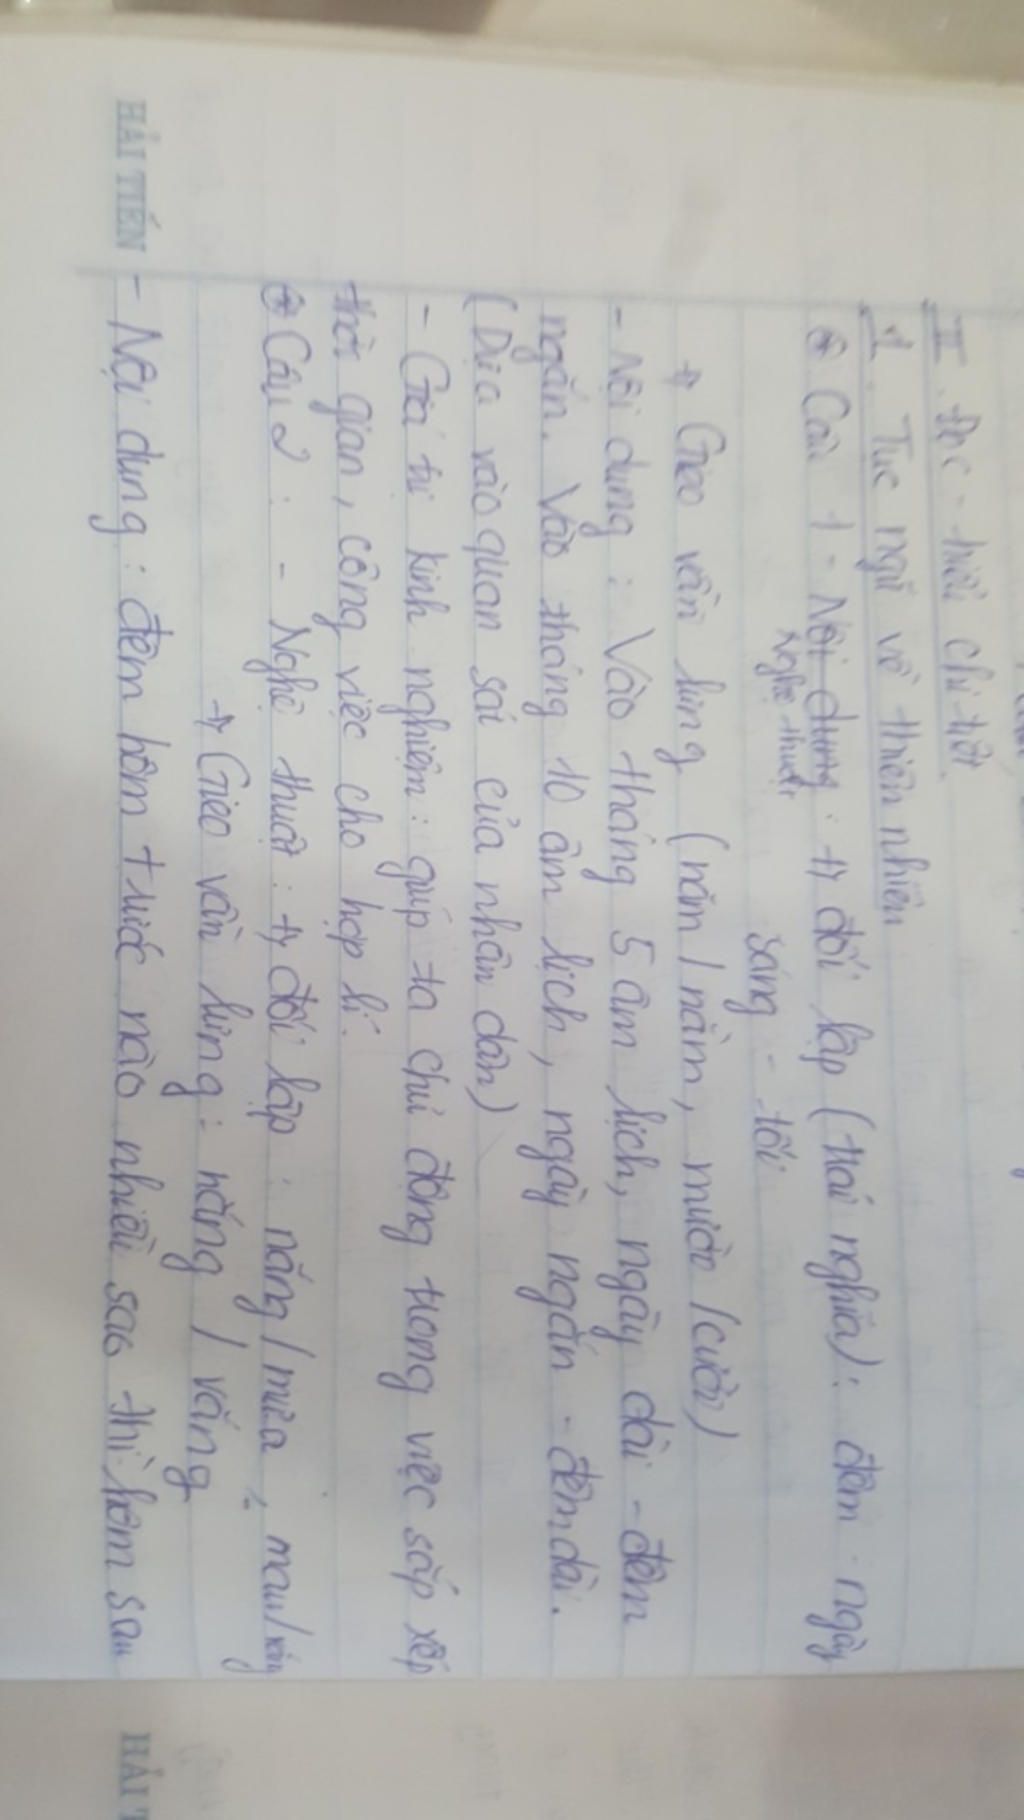 II. Đọc - hiểu chi tiết
1. Tục ngữ về thiên nhiên
* Câu 1 - Nội dung: → đối lập (trái nghĩa): đêm - ngày
Nghệ thuật sáng - tối
→ Gieo vần lưng (năm / nằm, mười / cười)
- Nội dung: Vào tháng 5 âm lịch, ngày dài - đêm
ngắn. Vào tháng 10 âm lịch, ngày ngắn - đêm dài.
(Dựa vào quan sát của nhân dân)
- Giá trị kinh nghiệm: giúp ta chủ động trong việc sắp xếp
thời gian, công việc cho hợp lí.
* Câu 2: - Nghệ thuật: → đối lập: nắng / mưa, mau /
→ Gieo vần lưng: nắng / vắng
HẢI TIẾN - Nội dung: đêm hôm trước nào nhiều sao thì hôm sau
HẢI T